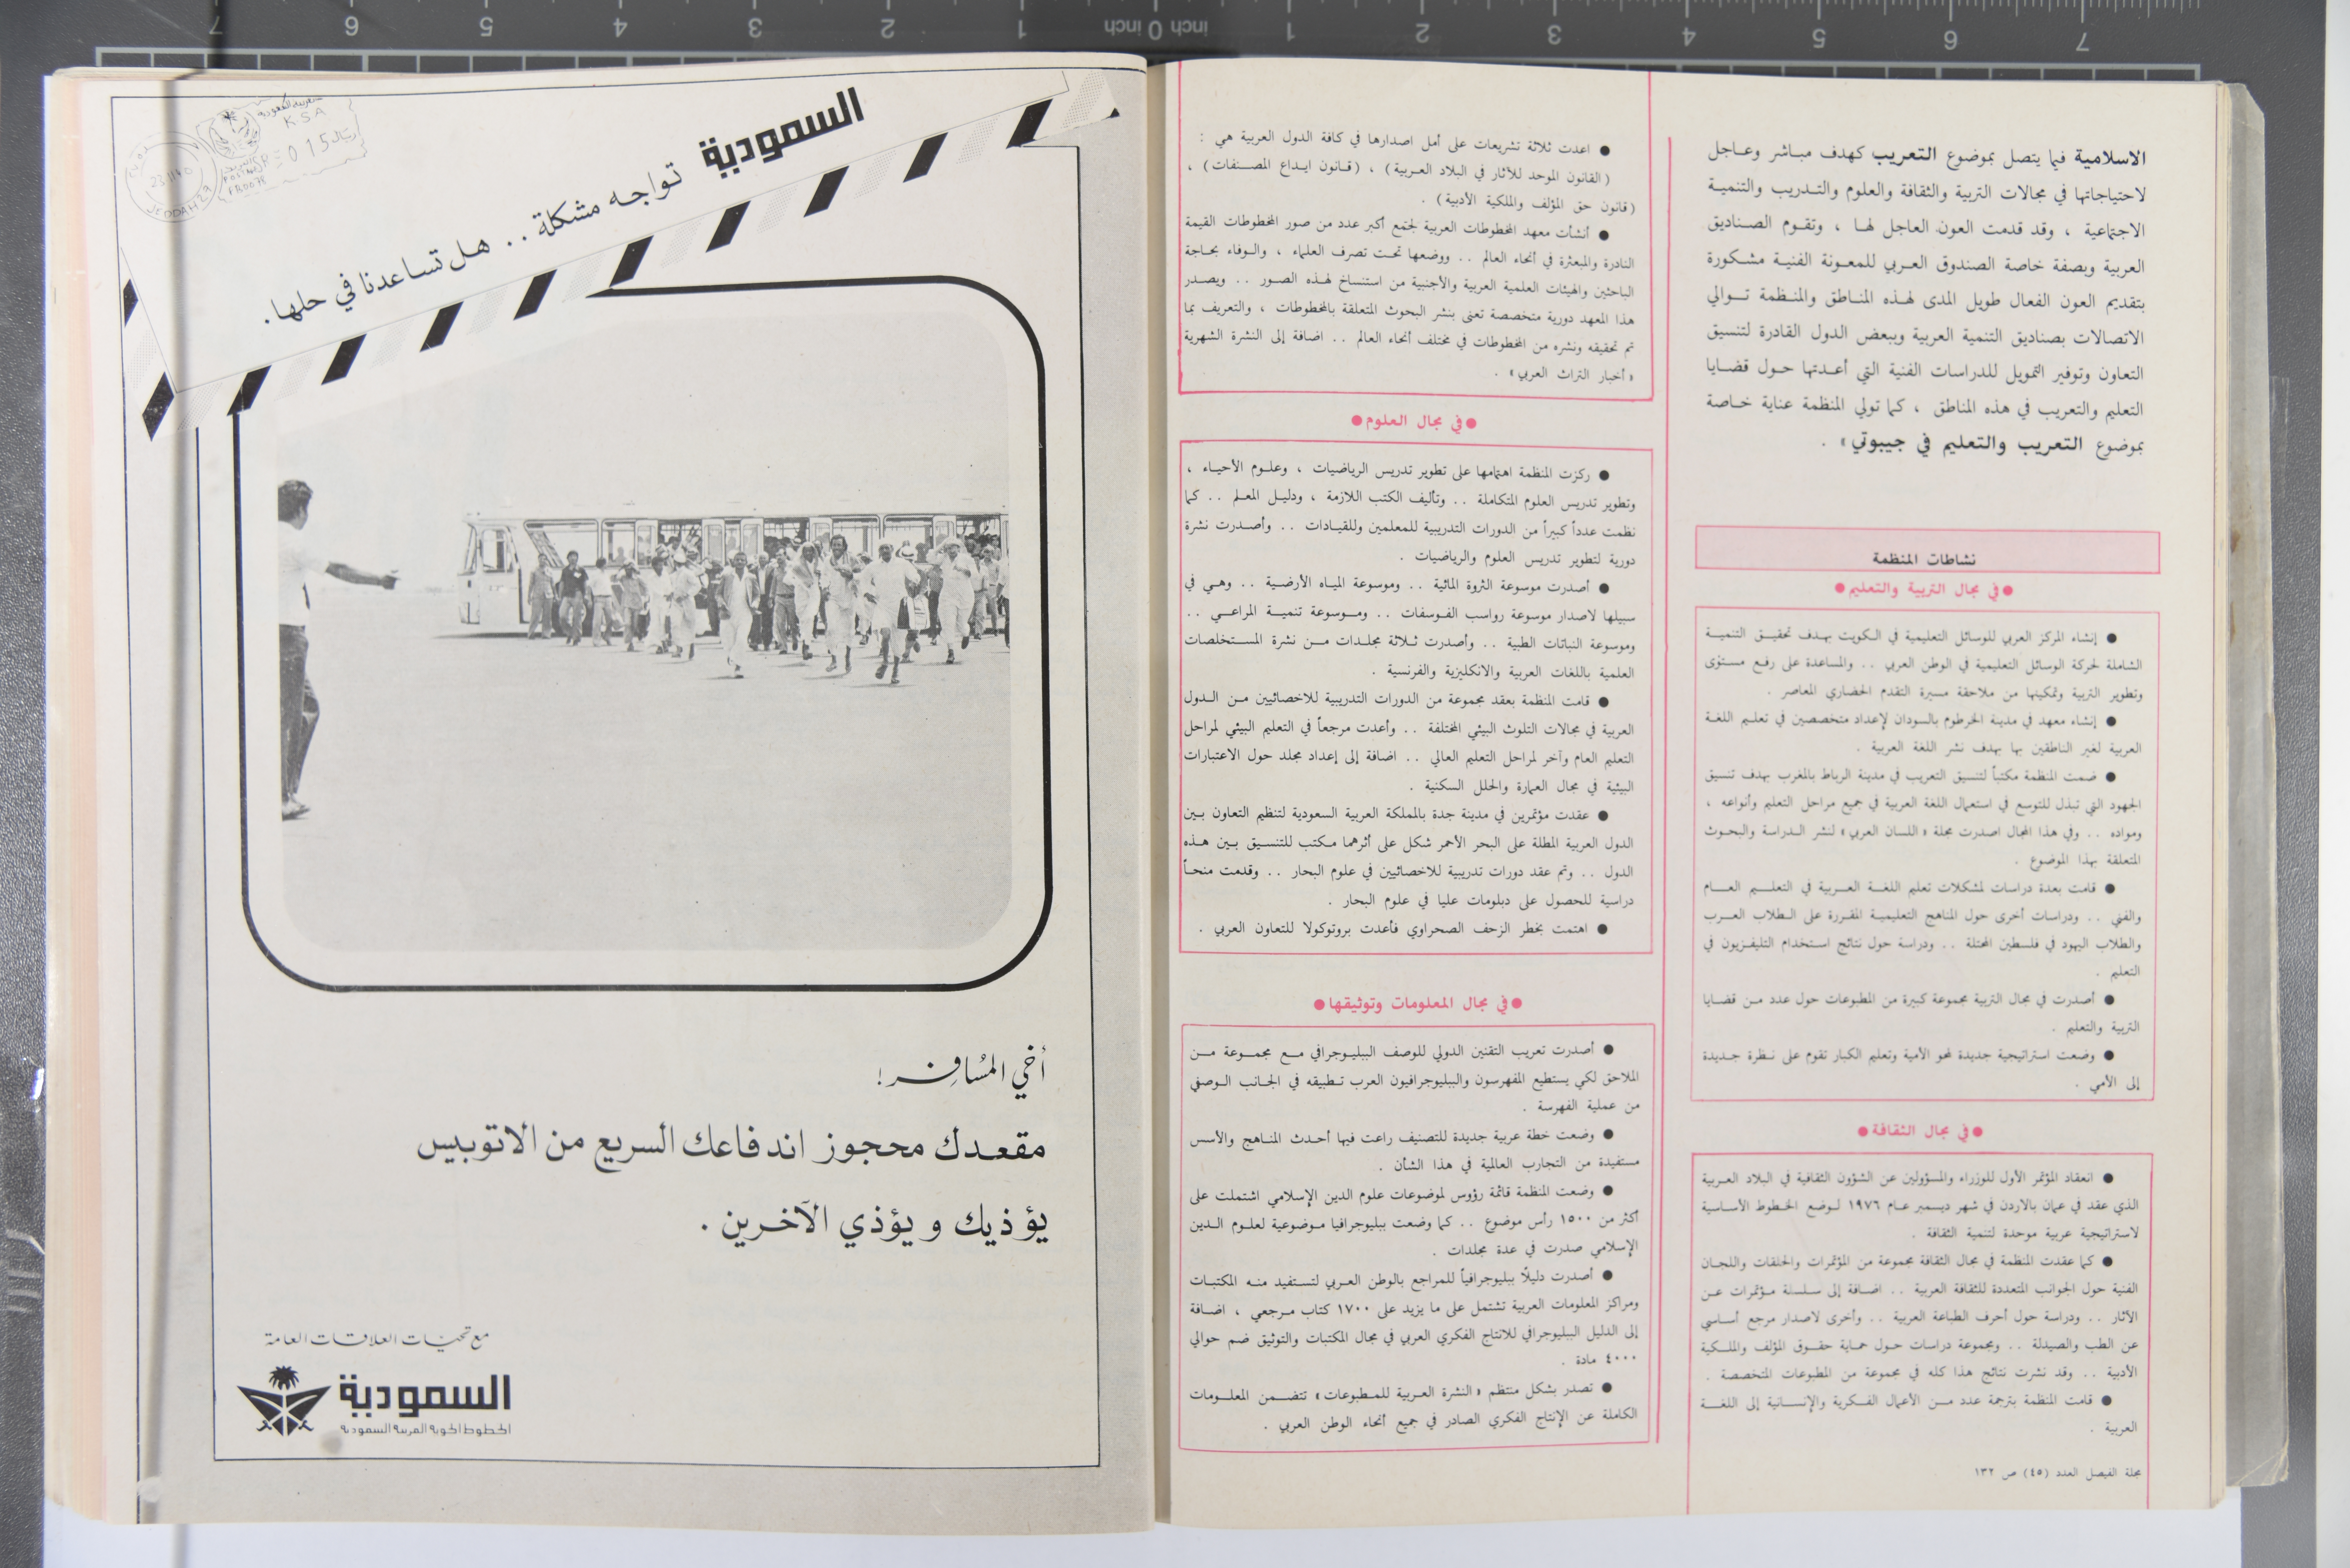 الاسلامية فيما يتصل بموضوع التعريب كهدف مباشر وعاجل
لاحتياجاتها في مجالات التربية والثقافة والعلوم والتدريب والتنمية
الاجتماعية ، وقد قدمت العون العاجل لها ، وتقوم الصناديق
العربية وبصفة خاصة الصندوق العربي للمعونة الفنية مشكورة
بتقديم العون الفعال طويل المدى لهذه المناطق والمنظمة توالي
الاتصالات بصناديق التنمية العربية وببعض الدول القادرة لتنسيق
التعاون وتوفير التمويل للدراسات الفنية التي أعدتها حول قضايا
التعليم والتعريب في هذه المناطق ، كما تولي المنظمة عناية خاصة
بموضوع التعريب والتعليم في جيبوتي» .
نشاطات المنظمة
●في مجال التربية والتعليم●
● إنشاء المركز العربي للوسائل التعليمية في الكويت بهدف تحقيق التنمية
الشاملة لحركة الوسائل التعليمية في الوطن العربي .. والمساعدة على رفع مستوى
وتطوير التربية وتمكينها من ملاحقة مسيرة التقدم الحضاري المعاصر .
● إنشاء معهد في مدينة الخرطوم بالسودان لإعداد متخصصين في تعليم اللغة
العربية لغير الناطقين بها بهدف نشر اللغة العربية .
● ضمت المنظمة مكتباً لتنسيق التعريب في مدينة الرباط بالمغرب بهدف تنسيق
الجهود التي تبذل للتوسع في استعمال اللغة العربية في جميع مراحل التعليم وأنواعه ،
ومواده .. وفي هذا المجال اصدرت مجلة «اللسان العربي» لنشر الدراسة والبحوث
المتعلقة بهذا الموضوع .
● قامت بعدة دراسات لمشكلات تعليم اللغة العربية في التعليم العام
والفني .. ودراسات أخرى حول المناهج التعليمية المقررة على الطلاب العرب
والطلاب اليهود في فلسطين المحتلة .. ودراسة حول نتائج استخدام التليفزيون في
التعليم .
● أصدرت في مجال التربية مجموعة كبيرة من المطبوعات حول عدد من قضايا
التربية والتعليم .
● وضعت استراتيجية جديدة لمحو الأمية وتعليم الكبار تقوم على نظرة جديدة
إلى الأمي .
●في مجال الثقافة●
● انعقاد المؤتمر الأول للوزراء والمسؤولين عن الشؤون الثقافية في البلاد العربية
الذي عقد في عمان بالاردن في شهر ديسمبر عام ١٩٧٦ لوضع الخطوط الأساسية
لاستراتيجية عربية موحدة لتنمية الثقافة .
● كما عقدت المنظمة في مجال الثقافة مجموعة من المؤتمرات والحلقات واللجان
الفنية حول الجوانب المتعددة للثقافة العربية .. اضافة إلى سلسلة مؤتمرات عن
الآثار .. ودراسة حول أحرف الطباعة العربية .. وأخرى لاصدار مرجع أساسي
عن الطب والصيدلة .. ومجموعة دراسات حول حماية حقوق المؤلف والملكية
الأدبية .. وقد نشرت نتائج هذا كله في مجموعة من المطبوعات المتخصصة .
● قامت المنظمة بترجمة عدد من الأعمال الفكرية والإنسانية إلى اللغة
العربية .
مجلة الفيصل العدد (٤٥) ص ١٣٢
● اعدت ثلاثة تشريعات على أمل اصدارها في كافة الدول العربية هي :
(القانون الموحد للآثار في البلاد العربية) ، (قانون ايداع المصنفات) ،
(قانون حق المؤلف والملكية الأدبية) .
● أنشأت معهد المخطوطات العربية لجمع أكبر عدد من صور المخطوطات القيمة
النادرة والمبعثرة في أنحاء العالم .. ووضعها تحت تصرف العلماء ، والوفاء بحاجة
الباحثين والهيئات العلمية العربية والأجنبية من استنساخ لهذه الصور .. ويصدر
هذا المعهد دورية متخصصة تعنى بنشر البحوث المتعلقة بالمخطوطات ، والتعريف بما
تم تحقيقه ونشره من المخطوطات في مختلف أنحاء العالم .. اضافة إلى النشرة الشهرية
«أخبار التراث العربي» .
●في مجال العلوم●
● ركزت المنظمة اهتمامها على تطوير تدريس الرياضيات ، وعلوم الأحياء ،
وتطوير تدريس العلوم المتكاملة .. وتأليف الكتب اللازمة ، ودليل المعلم .. كما
نظمت عدداً كبيراً من الدورات التدريبية للمعلمين وللقيادات .. وأصدرت نشرة
دورية لتطوير تدريس العلوم والرياضيات .
● أصدرت موسوعة الثروة المائية .. وموسوعة المياه الأرضية .. وهي في
سبيلها لاصدار موسوعة رواسب الفوسفات .. وموسوعة تنمية المراعي ..
وموسوعة النباتات الطبية .. وأصدرت ثلاثة مجلدات من نشرة المستخلصات
العلمية باللغات العربية والانكليزية والفرنسية .
● قامت المنظمة بعقد مجموعة من الدورات التدريبية للاخصائيين من الدول
العربية في مجالات التلوث البيئي المختلفة .. وأعدت مرجعاً في التعليم البيئي لمراحل
التعليم العام وآخر لمراحل التعليم العالي .. اضافة إلى إعداد مجلد حول الاعتبارات
البيئية في مجال العمارة والحلل السكنية .
● عقدت مؤتمرين في مدينة جدة بالمملكة العربية السعودية لتنظيم التعاون بين
الدول العربية المطلة على البحر الأحمر شكل على أثرهما مكتب للتنسيق بين هذه
الدول .. وتم عقد دورات تدريبية للاخصائيين في علوم البحار .. وقدمت منحاً
دراسية للحصول على دبلومات عليا في علوم البحار .
● اهتمت بخطر الزحف الصحراوي فأعدت بروتوكولا للتعاون العربي .
●في مجال المعلومات وتوثيقها●
● أصدرت تعريب التقنين الدولي للوصف الببليوجرافي مع مجموعة من
الملاحق لكي يستطيع المفهرسون والببليوجرافيون العرب تطبيقه في الجانب الوصفي
من عملية الفهرسة .
● وضعت خطة عربية جديدة للتصنيف راعت فيها أحدث المناهج والأسس
مستفيدة من التجارب العالمية في هذا الشأن .
● وضعت المنظمة قائمة رؤوس لموضوعات علوم الدين الإسلامي اشتملت على
أكثر من ١٥٠٠ رأس موضوع .. كما وضعت ببليوجرافيا موضوعية لعلوم الدين
الإسلامي صدرت في عدة مجلدات .
● أصدرت دليلاً ببليوجرافياً للمراجع بالوطن العربي لتستفيد منه المكتبات
ومراكز المعلومات العربية تشتمل على ما يزيد على ١٧٠٠ كتاب مرجعي ، اضافة
إلى الدليل الببليوجرافي للانتاج الفكري العربي في مجال المكتبات والتوثيق ضم حوالي
٤٠٠٠ مادة .
● تصدر بشكل منتظم «النشرة العربية للمطبوعات» تتضمن المعلومات
الكاملة عن الإنتاج الفكري الصادر في جميع أنحاء الوطن العربي .
K.S.A
015
JEDDAH
السعودية تواجه مشكلة .. هل تساعدنا في حلها .
أخي المسافر !
مقعدك محجوز اندفاعك السريع من الاتوبيس
يؤذيك ويؤذي الآخرين .
مع تحيات العلاقات العامة
السعودية
الخطوط الجوية العربية السعودية
7 6 5 4 3 2 1 inch 0 inch 1 2 3 4 5 6 7